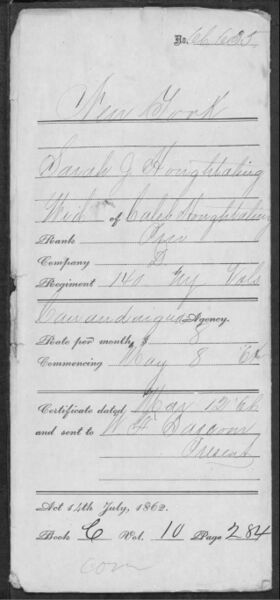 No. 66.625
New York
Sarah J Houghtaling
Wid of Caleb Houghtaling
Rank Priv
Company D
Regiment 140 Ny Vols
Canandaigua Agency.
Rate per month, $ 8
Commencing May 8 '64
Certificate dated May 12 '66
and sent to W H
Present
Act 14th July, 1862.
Book C Vol. 10 Page 284